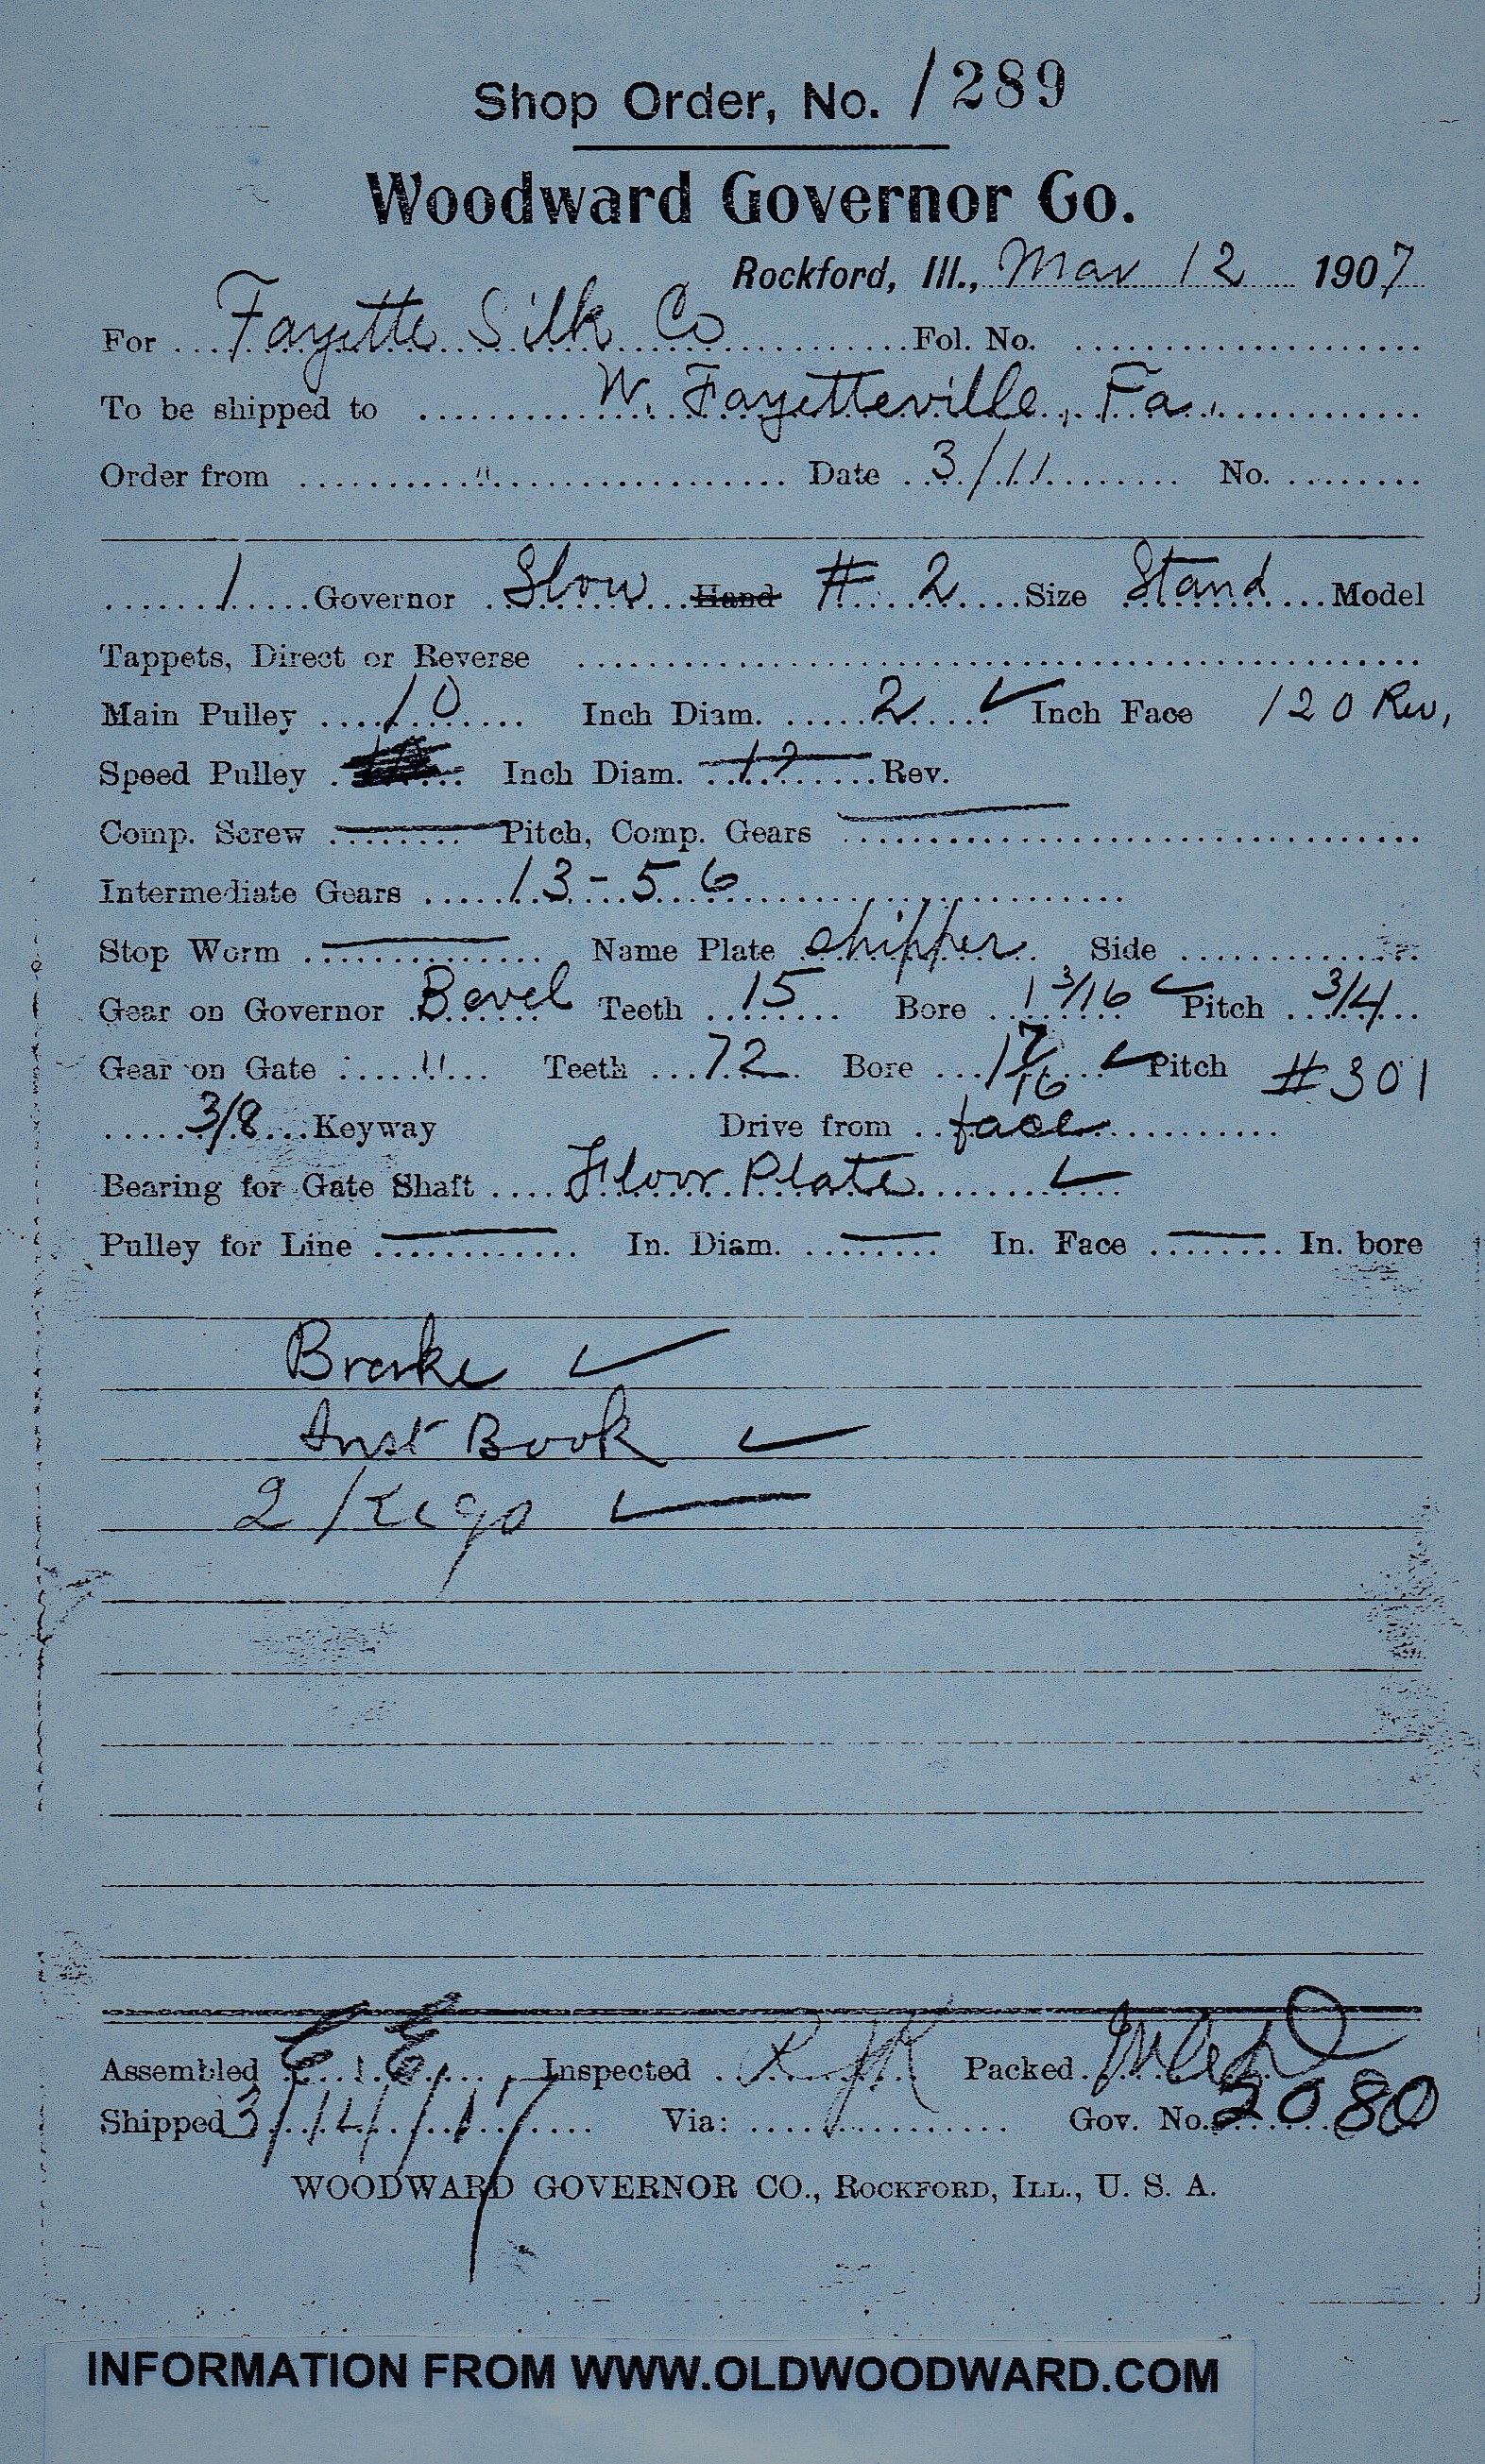 Shop Order, No. 1289
Woodward Governor Co.
Rockford, Ill., Mar 12 1907
For Fayette Silk Co Fol. No.
To be shipped to W. Fayetteville, Fa.
Order from " Date 3/11 No.
1 Governor Slow Hand # 2 Size Stand Model
Tappets, Direct or Reverse
Main Pulley 10 Inch Diam. 2 ✓ Inch Face 120 Rev,
Speed Pulley Inch Diam. Rev.
Comp. Screw — Pitch, Comp. Gears —
Intermediate Gears 13-56
Stop Worm — Name Plate shipper Side
Gear on Governor Bevel Teeth 15 Bore 1 3/16 ✓ Pitch 3/4
Gear on Gate " Teeth 72 Bore 1 7/16 ✓ Pitch #301
3/8 Keyway Drive from face
Bearing for Gate Shaft Floor Plate ✓
Pulley for Line — In. Diam. — In. Face — In. bore
Brake ✓
Inst Book ✓
2 Kegs ✓
Assembled C.E. Inspected Packed
Shipped 3/14/07 Via: Gov. No. 2080
WOODWARD GOVERNOR CO., ROCKFORD, ILL., U. S. A.
INFORMATION FROM WWW.OLDWOODWARD.COM